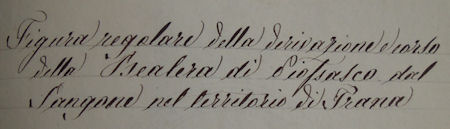 Figura regolare della derivazione e corso
della Bealera di Piossasco dal
Sangone nel territorio di Trana